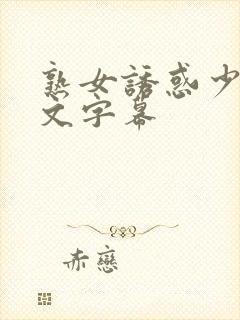 熟女誘惑少
文字幕
赤戀